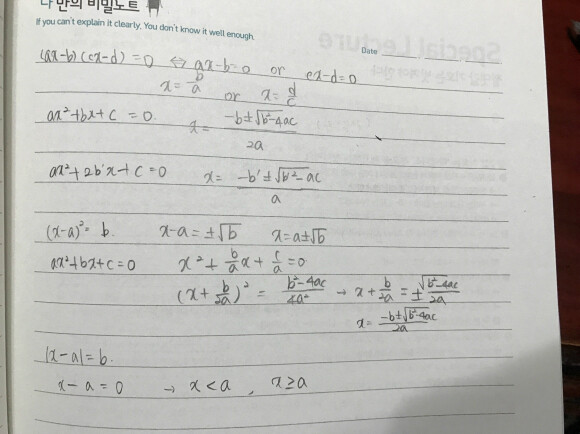 나만의 비밀노트
If you can't explain it clearly, You don't know it well enough.
Special Lecture
Date
(ax-b)(cx-d)=0 ⇔ ax-b=0 or cx-d=0
x=b/a or x=d/c
ax²+bx+c=0. x=(-b±√(b²-4ac))/2a
ax²+2b'x+c=0 x=(-b'±√(b'²-ac))/a
(x-a)²=b. x-a=±√b x=a±√b
ax²+bx+c=0 x²+(b/a)x+c/a=0
(x+b/2a)²=(b²-4ac)/4a² → x+b/2a=±√(b²-4ac)/2a
x=(-b±√(b²-4ac))/2a
|x-a|=b.
x-a=0 → x<a, x≥a